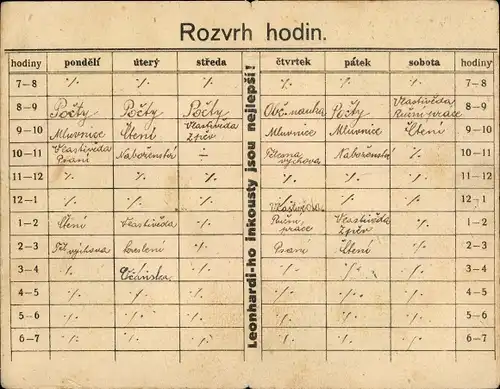 Rozvrh hodin.
hodiny pondělí úterý středa čtvrtek pátek sobota hodiny
7–8 ·/. ·/. ·/. ·/. ·/. ·/. 7–8
8–9 Počty Počty Počty Obč. nauka Počty Vlastivěda Ruční práce 8–9
9–10 Mluvnice Čtení Vlastivěda Zpěv Mluvnice Mluvnice Čtení 9–10
10–11 Vlastivěda Psaní Náboženství ÷ Tělesná výchova Náboženství ·/. 10–11
11–12 ·/. ·/. ·/. ·/. ·/. ·/. 11–12
12–1 ·/. ·/. ·/. ·/. ·/. ·/. 12–1
1–2 Čtení Vlastivěda ·/. Vlastivěda Ruční práce Vlastivěda Zpěv ·/. 1–2
2–3 Těl. výchova Kreslení ·/. Psaní Čtení ·/. 2–3
3–4 ·/. ·/. ·/. ·/. ·/. 3–4
4–5 ·/. ·/. ·/. ·/. ·/. ·/. 4–5
5–6 ·/. ·/. ·/. ·/. ·/. ·/. 5–6
6–7 ·/. ·/. ·/. ·/. ·/. ·/. 6–7
Leonhardi-ho inkousty jsou nejlepší!